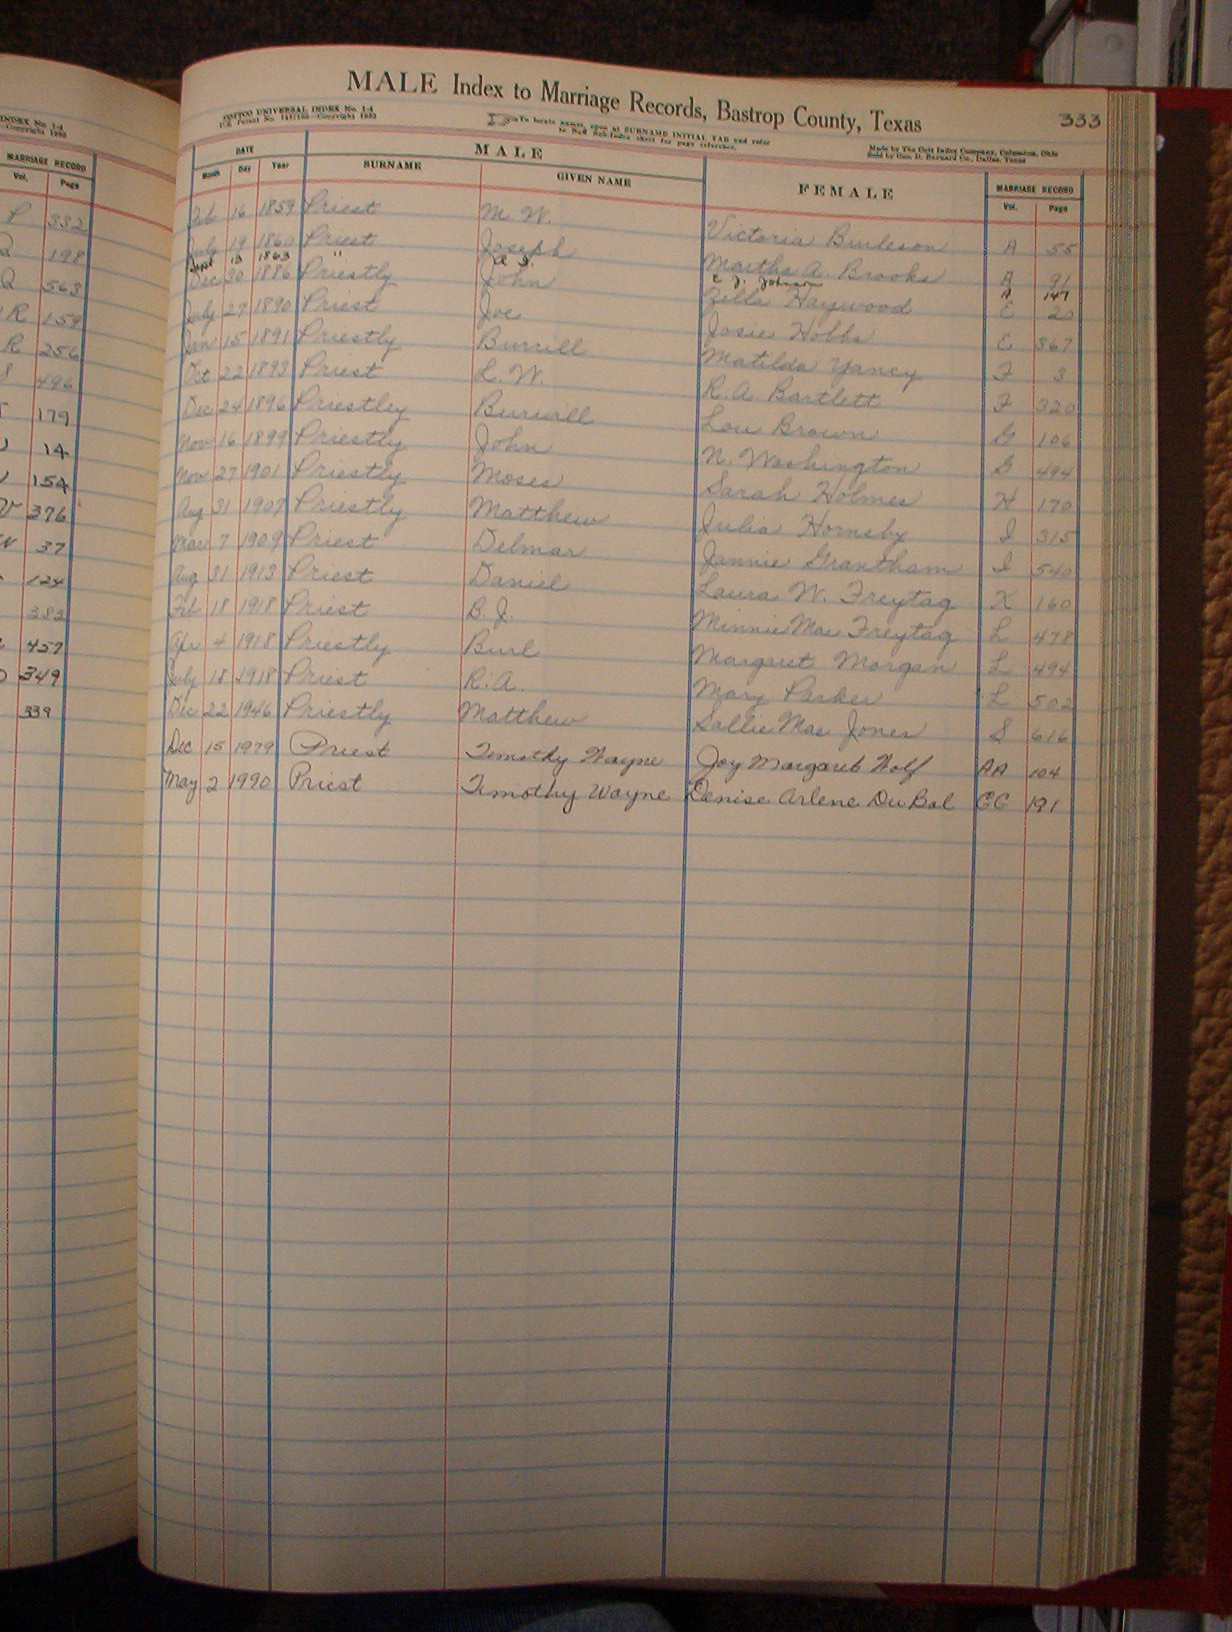 INDEX No. 1-4
Copyright 1933
MARRIAGE RECORD
Vol. Page
P 332
Q 198
Q 563
R 159
R 256
S 496
179
14
154
W 376
W 37
124
383
457
349
339
MALE Index to Marriage Records, Bastrop County, Texas 333
COTTCO UNIVERSAL INDEX No. 1-4
To locate names, open at SURNAME INITIAL TAB and refer
to Sub-Index sheet for page reference.
Made by The Cott Index Company, Columbus, Ohio
Sold by Geo. D. Barnard Co., Dallas, Texas
DATE MALE FEMALE MARRIAGE RECORD
Month Day Year SURNAME GIVEN NAME Vol. Page
Feb 16 1859 Priest M. W. Victoria Burleson A 55
July 19 1860 Priest Joseph Martha A. Brooks A 91
Sept 13 1863 " E. J. Johnson A 147
Dec 30 1886 Priestly John Zilla Haywood E 20
July 27 1890 Priest Joe Josie Hobbs E 367
Jan 15 1891 Priestly Burrill Matilda Yancy F 3
Oct 22 1893 Priest L. W. R. A. Bartlett F 320
Dec 24 1896 Priestley Burwill Lou Brown G 106
Nov 16 1899 Priestly John N. Washington G 494
Nov 27 1901 Priestly Moses Sarah Holmes H 170
Aug 31 1907 Priestly Matthew Julia Hornsby I 315
Mar 7 1909 Priest Delmar Jannie Grantham I 540
Aug 31 1913 Priest Daniel Laura W. Freytag K 160
Feb 18 1918 Priest B. J. Minnie Mae Freytag L 478
Apr 4 1918 Priestly Burl Margaret Morgan L 494
July 18 1918 Priest R. A. Mary Parker L 502
Dec 22 1946 Priestly Matthew Sallie Mae Jones S 616
Dec 15 1979 Priest Timothy Wayne Joy Margaret Wolf AA 104
May 2 1990 Priest Timothy Wayne Denise Arlene DuBol GG 191